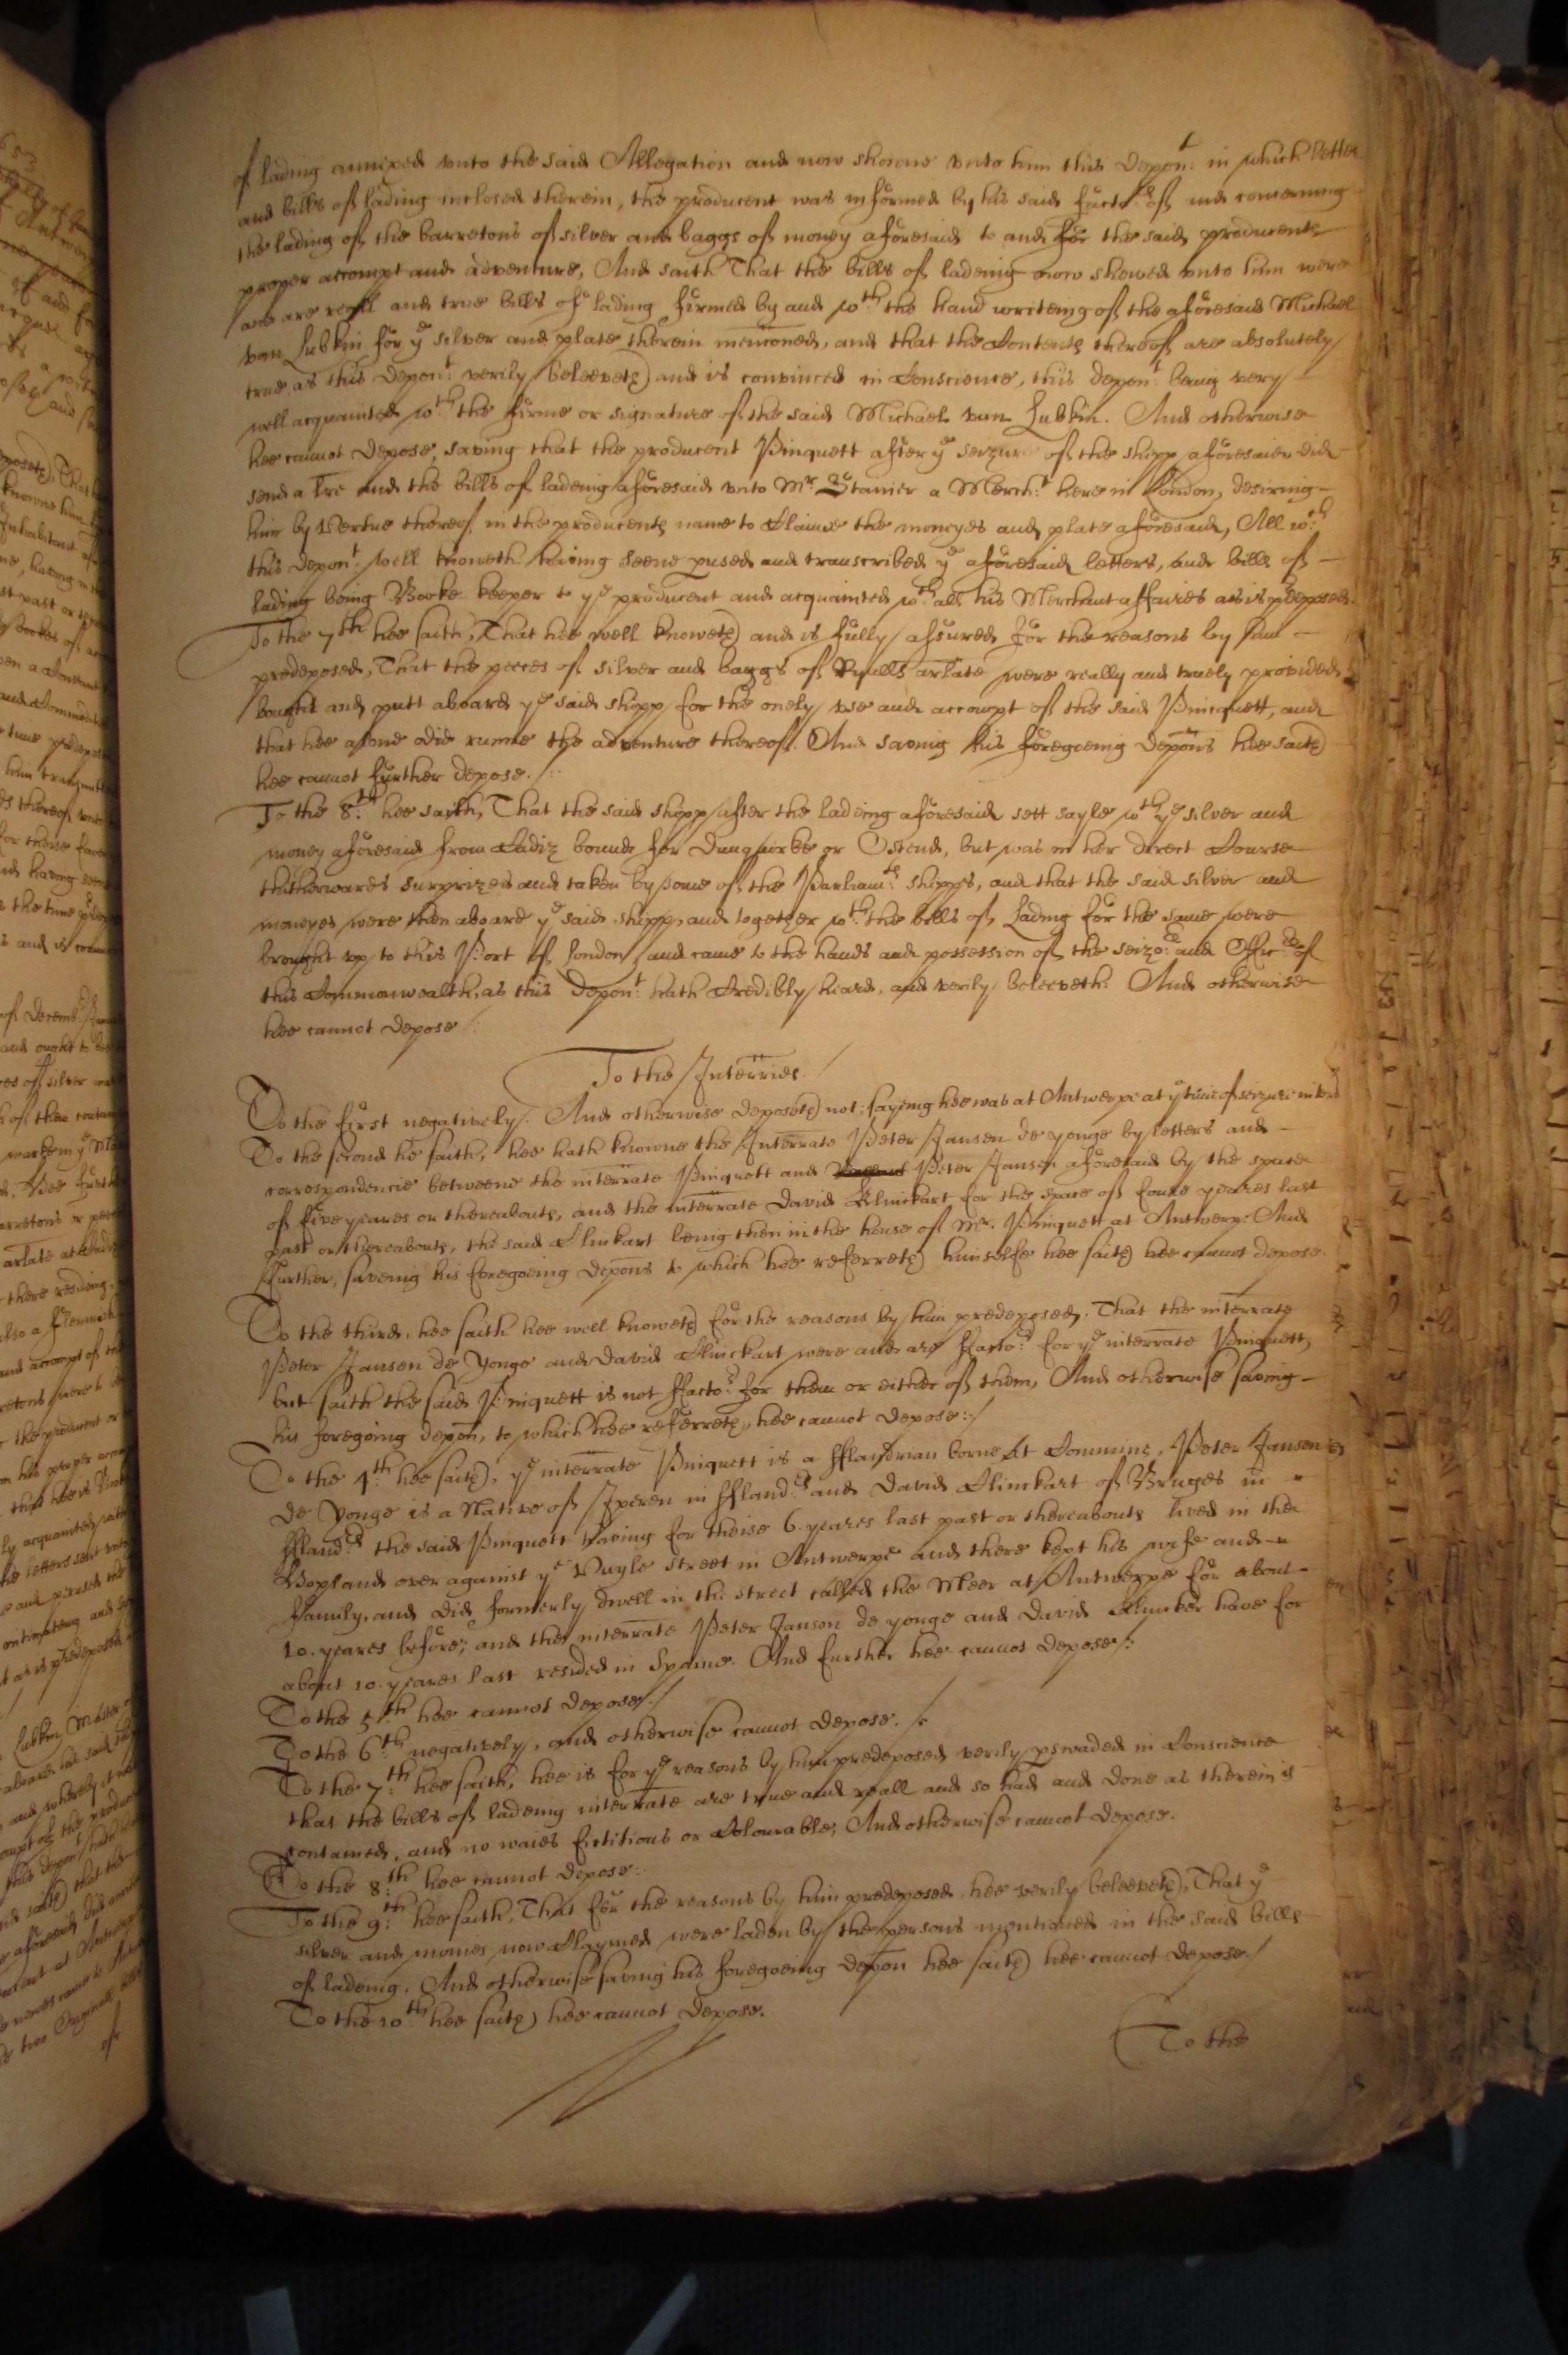 of lading annixed vnto the said Allegation and now showne vnto him this Depon:t in which letter
and bills of lading inclosed therein, the producent was informed by his said facto:rs of and concerning
the lading of the barretons of silver and baggs of money aforesaid to and for the said producents
proper accompt and adventure, And saith That the bills of ladeing now shewed vnto him were
and are reall and true bills of lading firmed by and w:th the hand writeing of the aforesaid Michael
van Lubkin for ye silver and plate therein menconed, and that the Contents thereof are absolutely
true as this Depon:t verily beleeveth and is convinced in Conscience, this depon:t being very
well acquainted w:th the firme or signature of the said Michael van Lubkin. And otherwise
hee cannot depose, saving that the producent Pinquett after ye seizure of the shipp aforesaid did
send a lre and the bills of ladeing aforesaid vnto Mr Stanier a Merch:t here in London, desireing
him by vertue thereof in the producents name to Claime the moneyes and plate aforesaid, All w:ch
this Depon:t well knoweth having seene pused and transcribed ye aforesaid letters, and bills of
lading being Booke keeper to ye producent and acquainted w:th all his Merchant affaires as is pdeposed.
To the 7th hee saith, That hee well knoweth and is fully assured for the reasons by him
predeposed, That the peeces of silver and baggs of Ryalls arlate were really and truely provided,
bought and putt aboard ye said shipp for the onely vse and accompt of the said Pincquett, and
that hee alone did runne the adventure thereof. And saving his foregoeing depons hee saith
hee cannot further depose.
To the 8:th hee saith, That the said shipp after the ladeing aforesaid sett sayle w:th ye silver and
money aforesaid from Cadiz bound for Dunquirke or Ostend, but was in her direct Course
thitherwards surprized and taken by some of the Parliam:ts shipps, and that the said silver and
moneyes were then aboard ye said shipp, and together w:th the bills of Lading for the same were
brought vp to this Port of London, and came to the hands and possession of the seizo:rs and Offic:rs of
this Commonwealth, as this Depon:t hath Credibly heard, and verily beleeveth. And otherwise
hee cannot depose
To the Interries.
To the first negatively. And otherwise deposeth not; sayeing hee was at Antwerpe at ye time of seizure interrd
To the second he saith, hee hath knowne the Interrate Peter Jansen de yonge by letters and
correspondencie betweene the interrate Pinquett and Peter Jansen aforesaid by the space
of five yeares or thereabouts, and the interrate David Clinckart for the space of foure yeares last
past or thereabouts, the said Clinkart being then in the house of Mr. Pinquett at Antwerp. And
further, saveing his foregoeing depons to which hee referreth himselfe hee saith hee cannot depose
To the third, hee saith hee well knoweth for the reasons by him predeposed, That the interrate
Peter Jansen de Yonge and David Clinckart were and are ffacto:rs for ye interrate Pinquett,
but saith the said Pinquett is not ffacto:r for them or either of them, And otherwise saving
his foregoing depon, to which hee referreth, hee cannot depose:/
To the 4:th hee saith, ye interrate Pinquett is a fflandrian borne at Commine, Peter Jansen
de Yonge is a Native of Iperen in ffland:rs and David Clinckart of Bruges in
ffland:rs the said Pinquett having for theise 6. yeares last past or thereabouts lived in the
Hopland over against ye Vuyle street in Antwerpe and there kept his wife and
family, and did formerly dwell in the street called the Meer at Antwerpe for about
10. yeares before; and the interrate Peter Janson de yonge and David Clincker have for
about 10. yeares last resided in Spaine. And further hee cannot depose/:
To the 5th hee cannot depose./
To the 6:th negatively, and otherwise cannot depose.
To the 7:th hee saith, hee is for ye reasons by him predeposed verily pswaded in Conscience
that the bills of ladeing interrate are true and reall and so had and done as therein is
contained, and no waies fictitious or Colourable, And otherwise cannot depose.
To the 8:th hee cannot depose:
To the 9:th hee saith, That for the reasons by him predeposed hee verily beleeveth, That ye
silver and monies now Claymed were laden by the persons mentioned in the said bills
of ladeing. And otherwise saving his foregoeing depon hee saith hee cannot depose./
To the 10th hee saith hee cannot depose.
To the